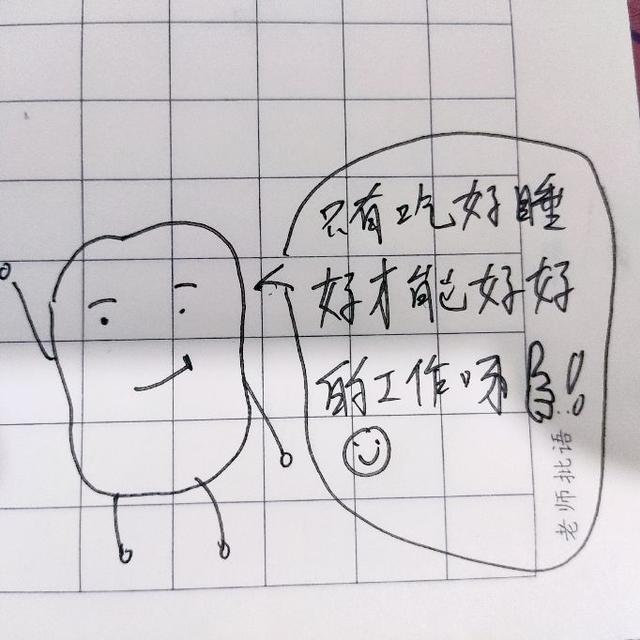 只有吃好睡
好才能好好
的工作呀!!
老师批语